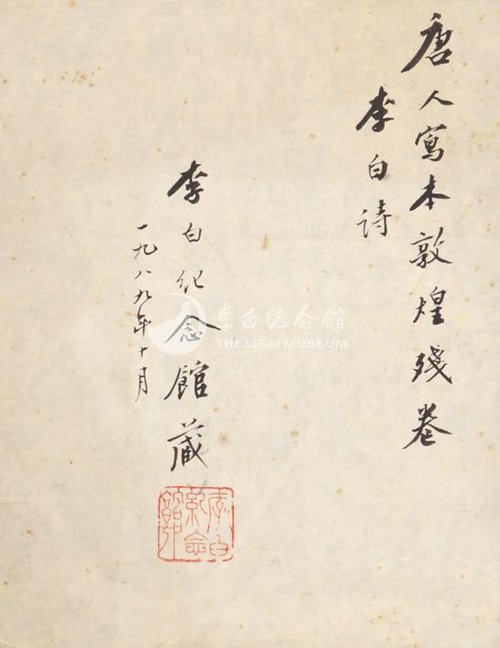 唐人寫本敦煌殘卷
李白詩
李白纪念館藏
一九八九年十月
李白纪念館
THE LIBAI MUSEUM